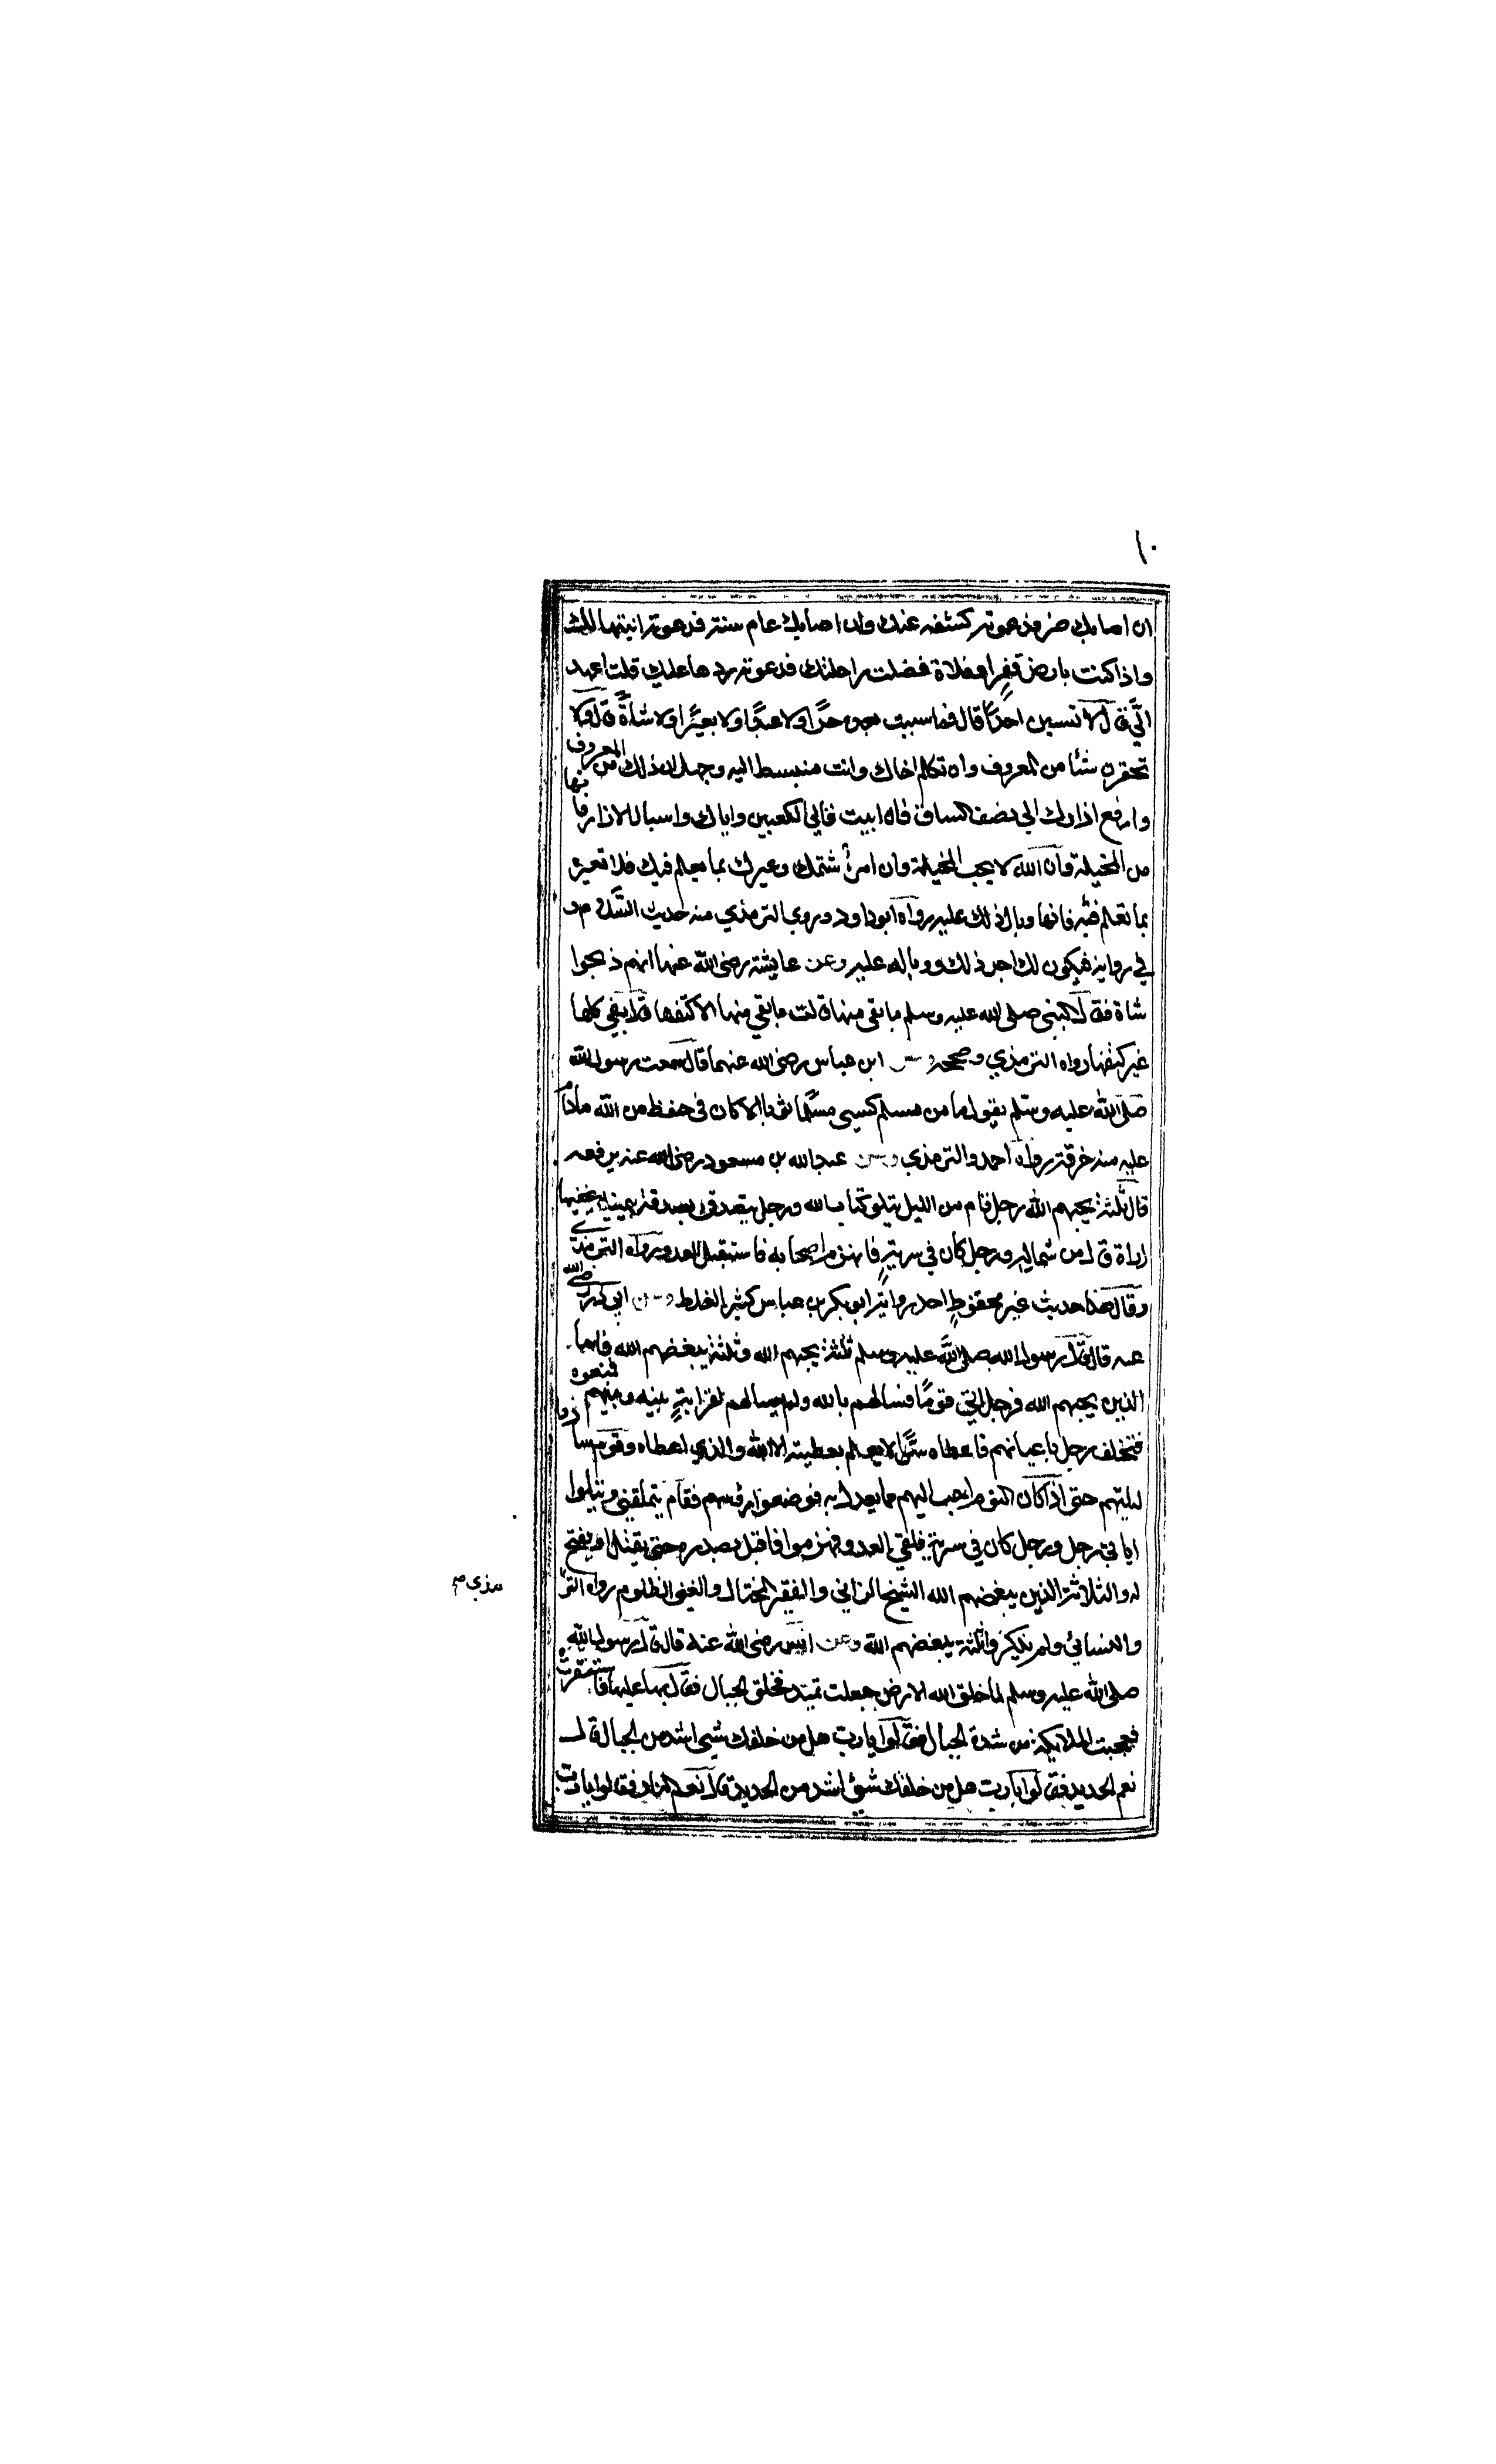 ١٠
ان اصابك ضر فدعوته كشفه عنك وان اصابك عام سنة فدعوته انبتها لك
واذا كنت بارض قفر او فلاة فضلت راحلتك فدعوته ردها عليك قلت اعهد
الَّي قال لا تسبن احدًا قال فما سببت بعده حرًا ولا عبدًا ولا بعيرًا ولا شاةً قال ولا
تحقرن شئا من المعروف وان تكلم اخاك وانت منبسط اليه وجهك ان ذلك من المعروف
وارفع ازارك الي نصف الساق فان ابيت فالي الكعبين واياك واسبال الازار فانها
من المخيلة وان الله لا يحب المخيلة وان امرأ شتمك وعيرك بما يعلم فيك فلا تعيره
بما تعلم فيه فانما وبال ذلك عليه رواه ابو داود وروي الترمذي منه حديث السلام و
في رواية فيكون لك اجر ذلك ووباله عليه وعن عايشة رضى الله عنها انهم ذبحوا
شاة فقال النبي صلى الله عليه وسلم ما بقى منها قالت ما بقي منها الا كتفها قال بقي كلها
غير كتفها رواه الترمذي وصححه وعن ابن عباس رضى الله عنهما قال سمعت رسول الله
صلى الله عليه وسلم يقول ما من مسلم كسى مسلما ثوبا الا كان فى حفظ من الله مادام
عليه منه خرقة رواه احمد والترمذي وعن عبد الله بن مسعود رضى الله عنه يرفعه
قال ثلثة يحبهم الله رجل قام من الليل يتلو كتاب الله ورجل يتصدق بصدقة بيمينه يخفيها
اراه قال من شماله ورجل كان في سرية فانهزم اصحابه فاستقبل العدو رواه الترمذي
وقال هذا حديث غير محفوظ احد رواية ابو بكر بن عياش كثير الغلط وعن ابي ذر رضي الله
عنه قال قال رسول الله صلى الله عليه وسلم ثلثة يحبهم الله وثلثة يبغضهم الله فاما
الذين يحبهم الله فرجل اتي قومًا فسالهم بالله ولم يسالهم لقرابة بينه وبينهم فمنعوه
فتخلف رجل باعيانهم فاعطاه سرًا لا يعلم بعطيته الا الله والذي اعطاه وقوم ساروا
ليلتهم حتى اذا كان النوم احب اليهم مما يعدل به فوضعوا رؤسهم فقام يتملقني ويتلوا
اياتي رجل ورجل كان في سرية فلقي العدو فهزموا فاقبل بصدره حتى يقتل او يفتح
له والثلاثة الذين يبغضهم الله الشيخ الزاني والفقير المختال والغني الظلوم رواه التر
مذي صح
والنسائي ولم يذكر وثلثة يبغضهم الله وعن انس رضى الله عنه قال قال رسول الله
صلى الله عليه وسلم لما خلق الله الارض جعلت تميد فخلق الجبال فقال بها عليها فاستقرت
فعجبت الملائكة من شدة الجبال فقالوا يا رب هل من خلقك شيئ اشد من الجبال قال
نعم الحديد فقالوا يا رب هل من خلقك شيئ اشد من الحديد قال نعم النار فقالوا يا رب